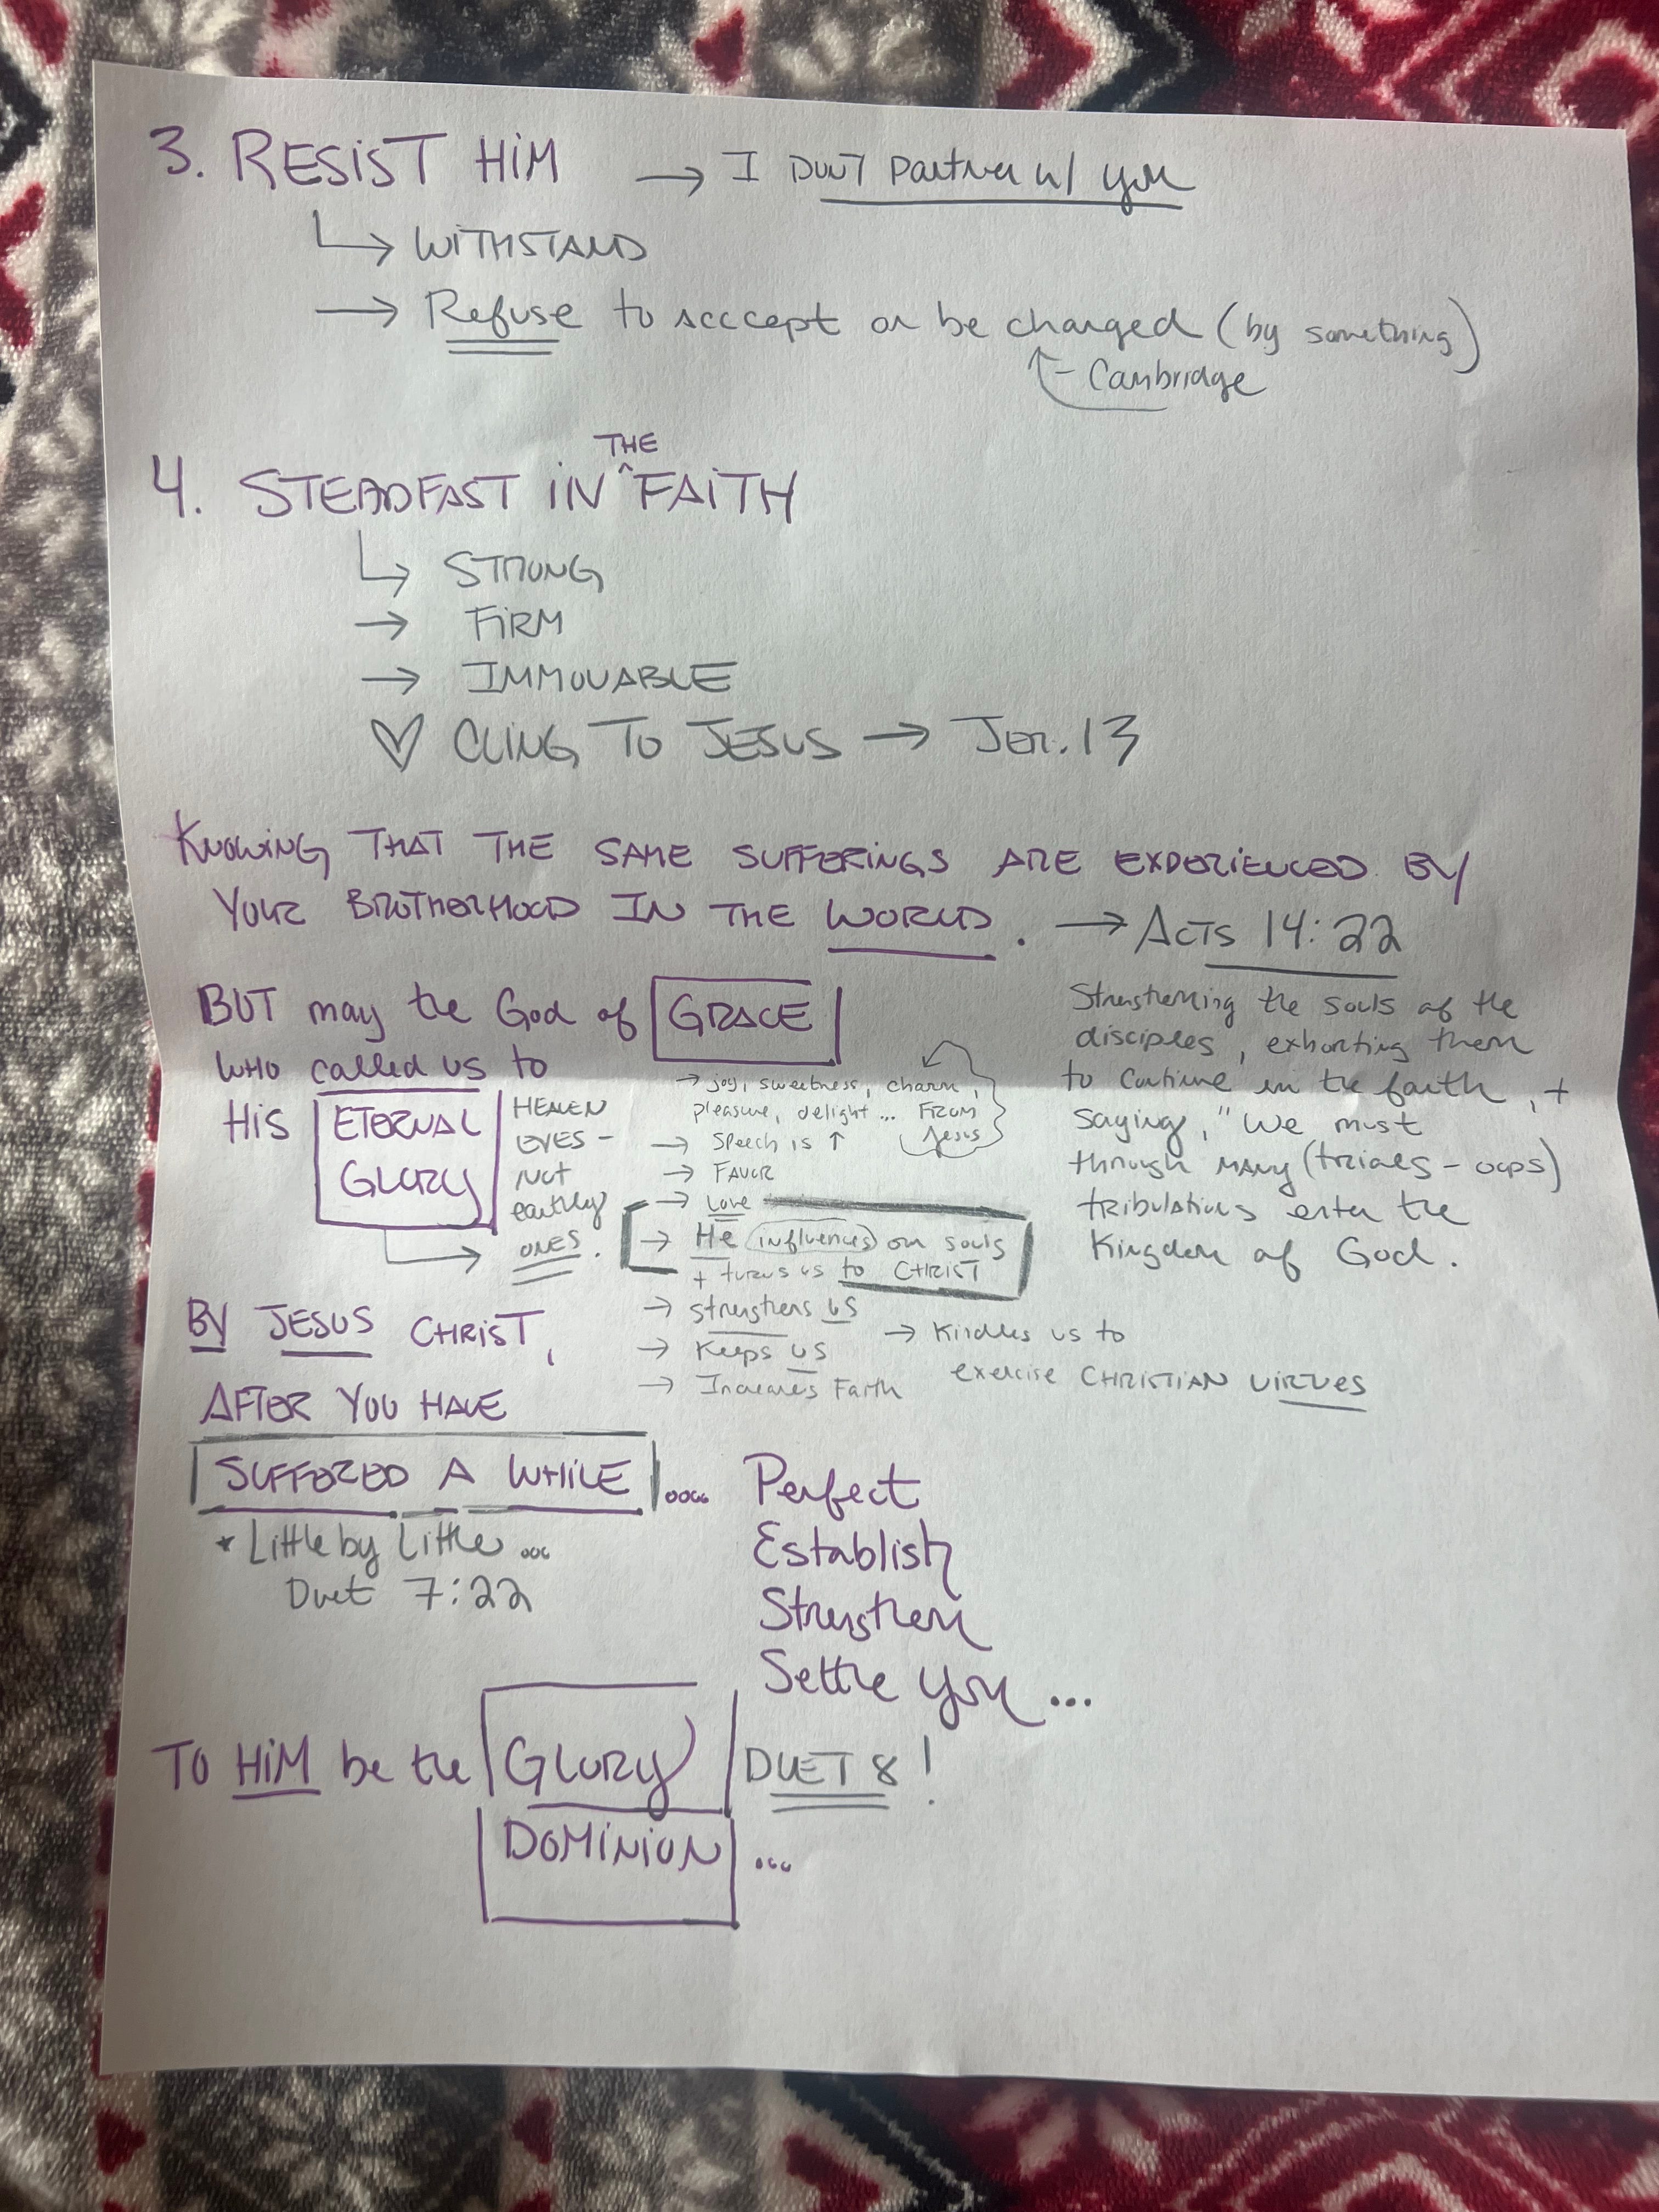 3. RESIST HIM → I DON'T partner w/ you
↳ WITHSTAND
→ Refuse to acccept or be changed (by something)
↑- Cambridge
THE
4. STEADFAST IN ^ FAITH
↳ STRONG
→ FIRM
→ IMMOVABLE
♡ CLING TO JESUS → Jer. 13
KNOWING THAT THE SAME SUFFERINGS ARE EXPERIENCED BY
YOUR BROTHERHOOD IN THE WORLD. → ACTS 14:22
BUT may the God of GRACE
WHO called us to
His ETERNAL
GLORY
HEAVEN
EYES -
NOT
earthly
ONES.
→ joy, sweetness, charm,
pleasure, delight... FROM
Jesus
→ Speech is ↑
→ FAVOR
→ Love
→ He influences on souls
+ turns us to CHRIST
→ strengthens US
→ Keeps US
→ Increases Faith
→ Kindles us to
exercise CHRISTIAN VIRTUES
Strengthening the souls of the
disciples, exhorting them
to continue in the faith, +
saying, "We must
through MANY (trials - oops)
tribulations enter the
Kingdom of God.
BY JESUS CHRIST,
AFTER YOU HAVE
SUFFERED A WHILE ....
* Little by Little ...
Duet 7:22
Perfect
Establish
Strengthen
Settle you ...
TO HIM be the GLORY DUET 8!
DOMINION ...